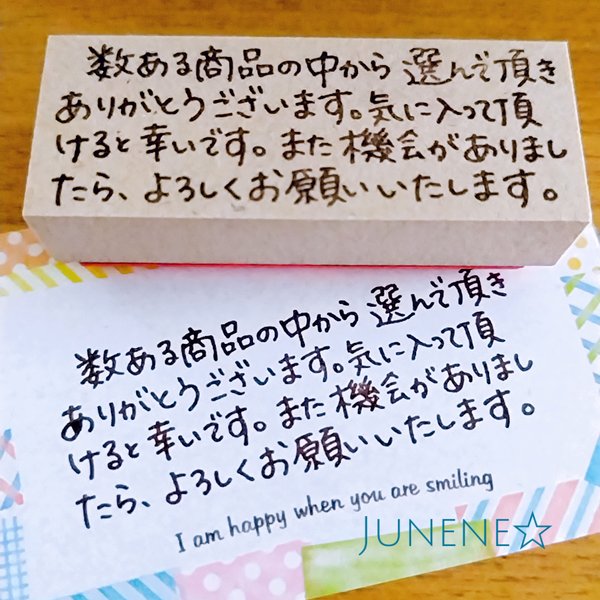 数ある商品の中から選んで頂き
ありがとうございます。気に入って頂
けると幸いです。また機会がありまし
たら、よろしくお願いいたします。
数ある商品の中から選んで頂き
ありがとうございます。気に入って頂
けると幸いです。また機会がありまし
たら、よろしくお願いいたします。
I am happy when you are smiling
JUNENE☆